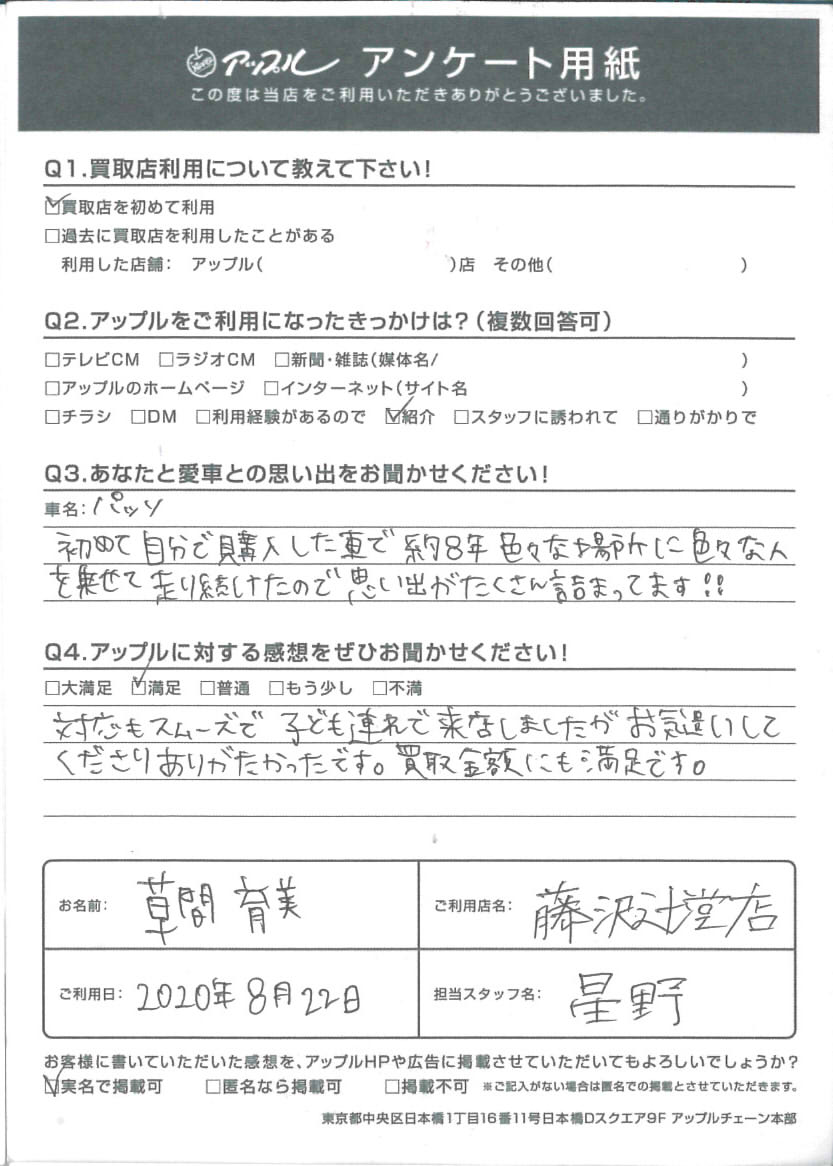 アップル アンケート用紙
この度は当店をご利用いただきありがとうございました。
Q1.買取店利用について教えて下さい!
☑買取店を初めて利用
□過去に買取店を利用したことがある
利用した店舗: アップル( )店 その他( )
Q2.アップルをご利用になったきっかけは?(複数回答可)
□テレビCM □ラジオCM □新聞・雑誌(媒体名/ )
□アップルのホームページ □インターネット(サイト名 )
□チラシ □DM □利用経験があるので ☑紹介 □スタッフに誘われて □通りがかりで
Q3.あなたと愛車との思い出をお聞かせください!
車名:パッソ
初めて自分で購入した車で約8年色々な場所に色々な人
を乗せて走り続けたので思い出がたくさん詰まってます!!
Q4.アップルに対する感想をぜひお聞かせください!
□大満足 ☑満足 □普通 □もう少し □不満
対応もスムーズで子ども連れで来店しましたがお気遣いして
くださりありがたかったです。買取金額にも満足です。
お名前: 草間 育美
ご利用店名: 藤沢辻堂店
ご利用日: 2020年8月22日
担当スタッフ名: 星野
お客様に書いていただいた感想を、アップルHPや広告に掲載させていただいてもよろしいでしょうか?
☑実名で掲載可 □匿名なら掲載可 □掲載不可 ※ご記入がない場合は匿名での掲載とさせていただきます。
東京都中央区日本橋1丁目16番11号日本橋Dスクエア9F アップルチェーン本部